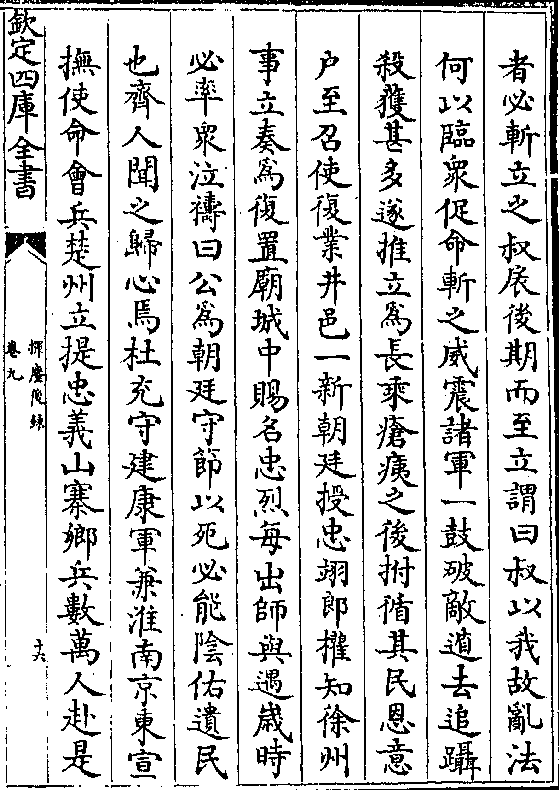 者必斬立之叔扆後期而至立謂曰叔以我故亂法
何以臨衆促命斬之威震諸軍一鼓破敵遁去追躡
殺獲甚多遂推立為長乘瘡痍之後拊循其民恩意
户至召使復業井邑一新朝廷授忠翊郎擢知徐州
事立奏為復置廟城中賜名忠烈每出師與遇嵗時
必率衆泣禱曰公為朝廷守節以死必能陰佑遺民
也齊人聞之歸心焉杜充守建康軍兼淮南京東宣
撫使命會兵楚州立提忠義山寨鄉兵數萬人赴是
欽定四庫全書
揮麈後録
卷九
十六